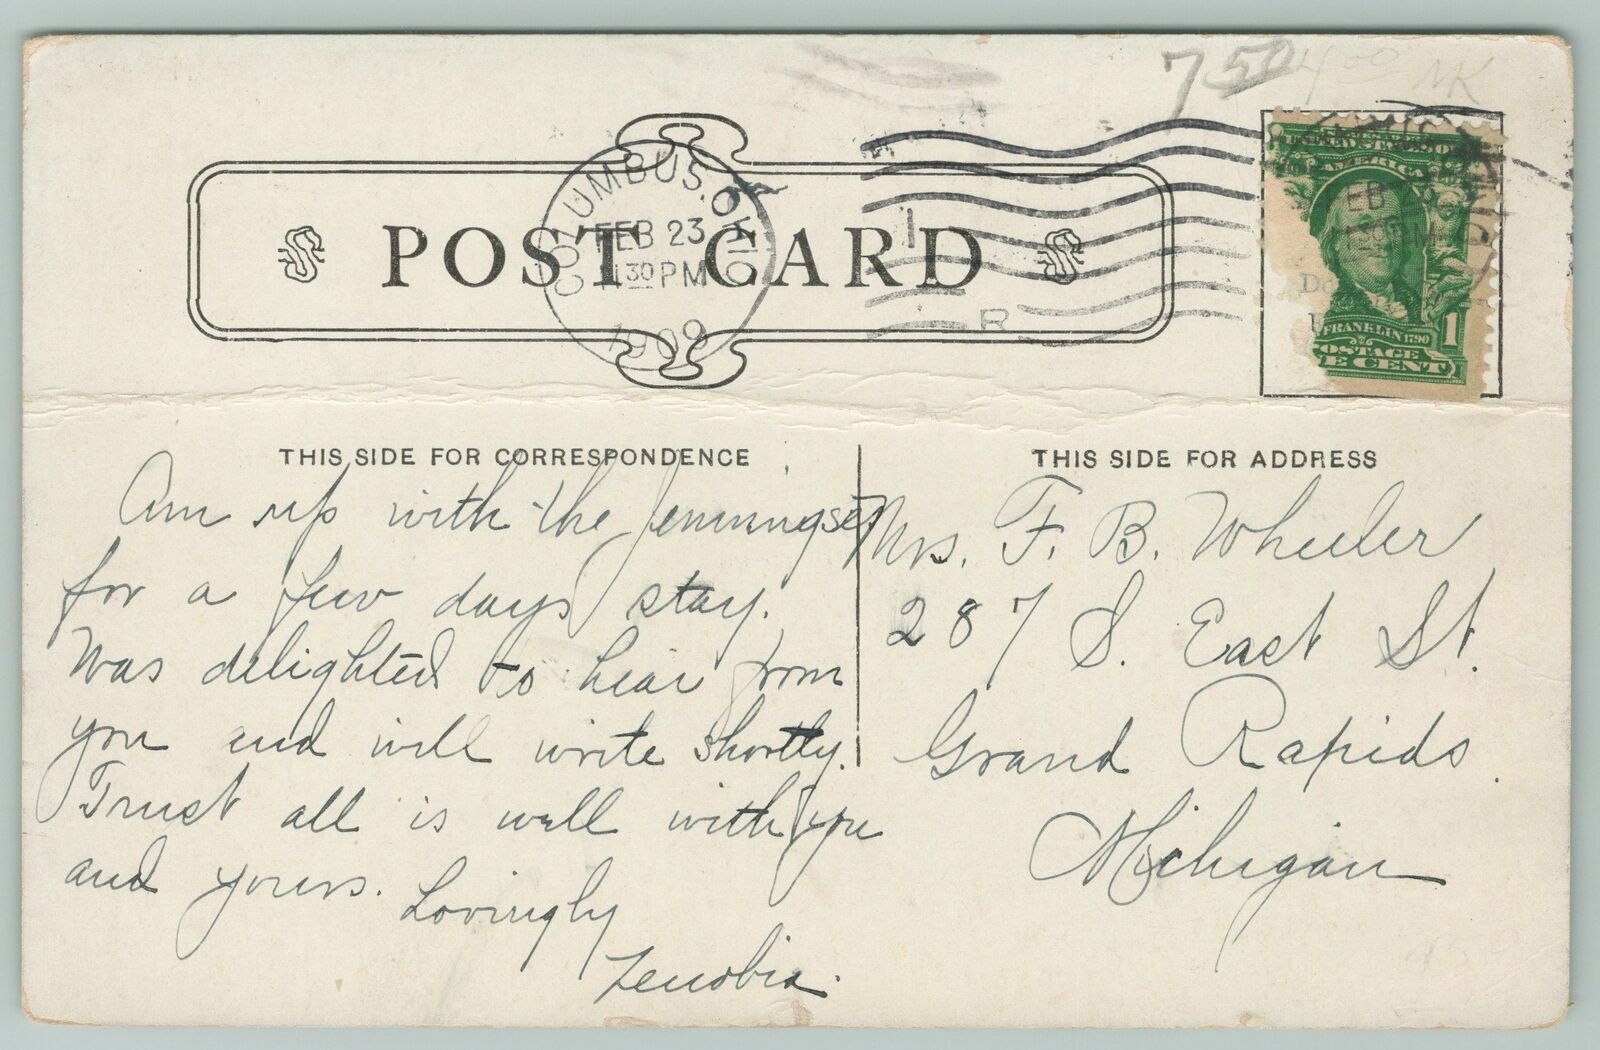 7 50 4 50 NK
COLUMBUS, OHIO
FEB 23
11 30 PM
POST CARD
UNITED STATES OF
AMERICA
FEB 23
FRANKLIN 1790
POSTAGE 1
E CENT
THIS SIDE FOR CORRESPONDENCE
Am up with the Jenningses
for a few days stay.
Was delighted to hear from
you and will write shortly.
Trust all is well with you
and yours. Lovingly
Zenobia.
THIS SIDE FOR ADDRESS
Mrs. F. B. Wheeler
287 S. East St.
Grand Rapids.
Michigan